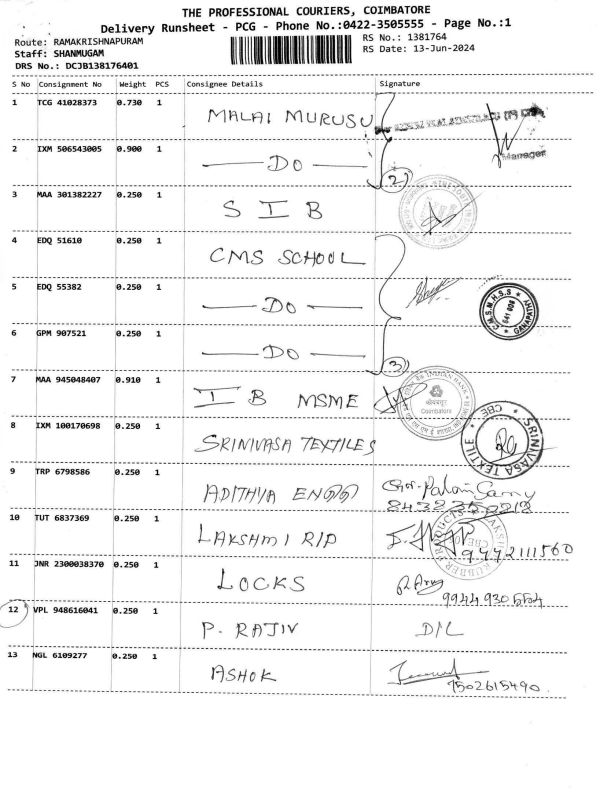 THE PROFESSIONAL COURIERS, COIMBATORE
Delivery Runsheet - PCG - Phone No.:0422-3505555 - Page No.:1
Route: RAMAKRISHNAPURAM RS No.: 1381764
Staff: SHANMUGAM RS Date: 13-Jun-2024
DRS No.: DCJB138176401
S No Consignment No Weight PCS Consignee Details Signature
1 TCG 41028373 0.730 1 MALAI MURUSU
Manager
2 IXM 506543005 0.900 1 —— DO —— 2
3 MAA 301382227 0.250 1 S I B
4 EDQ 51610 0.250 1 CMS SCHOOL
5 EDQ 55382 0.250 1 —— DO —— C.M.S.M.H.S.S GANAPATHY 641 006
6 GPM 907521 0.250 1 —— DO —— 3
7 MAA 945048407 0.910 1 I B MSME INDIAN BANK Coimbatore
8 IXM 100170698 0.250 1 SRINIVASA TEXTILES SRINIVASA TEXTILE CBE
9 TRP 6798586 0.250 1 ADITHYA ENGG
10 TUT 6837369 0.250 1 LAKSHMI RIP 9442111560
11 JNR 2300038370 0.250 1 LOCKS
12 VPL 948616041 0.250 1 P. RAJIV D/L
13 NGL 6109277 0.250 1 ASHOK
7502615490